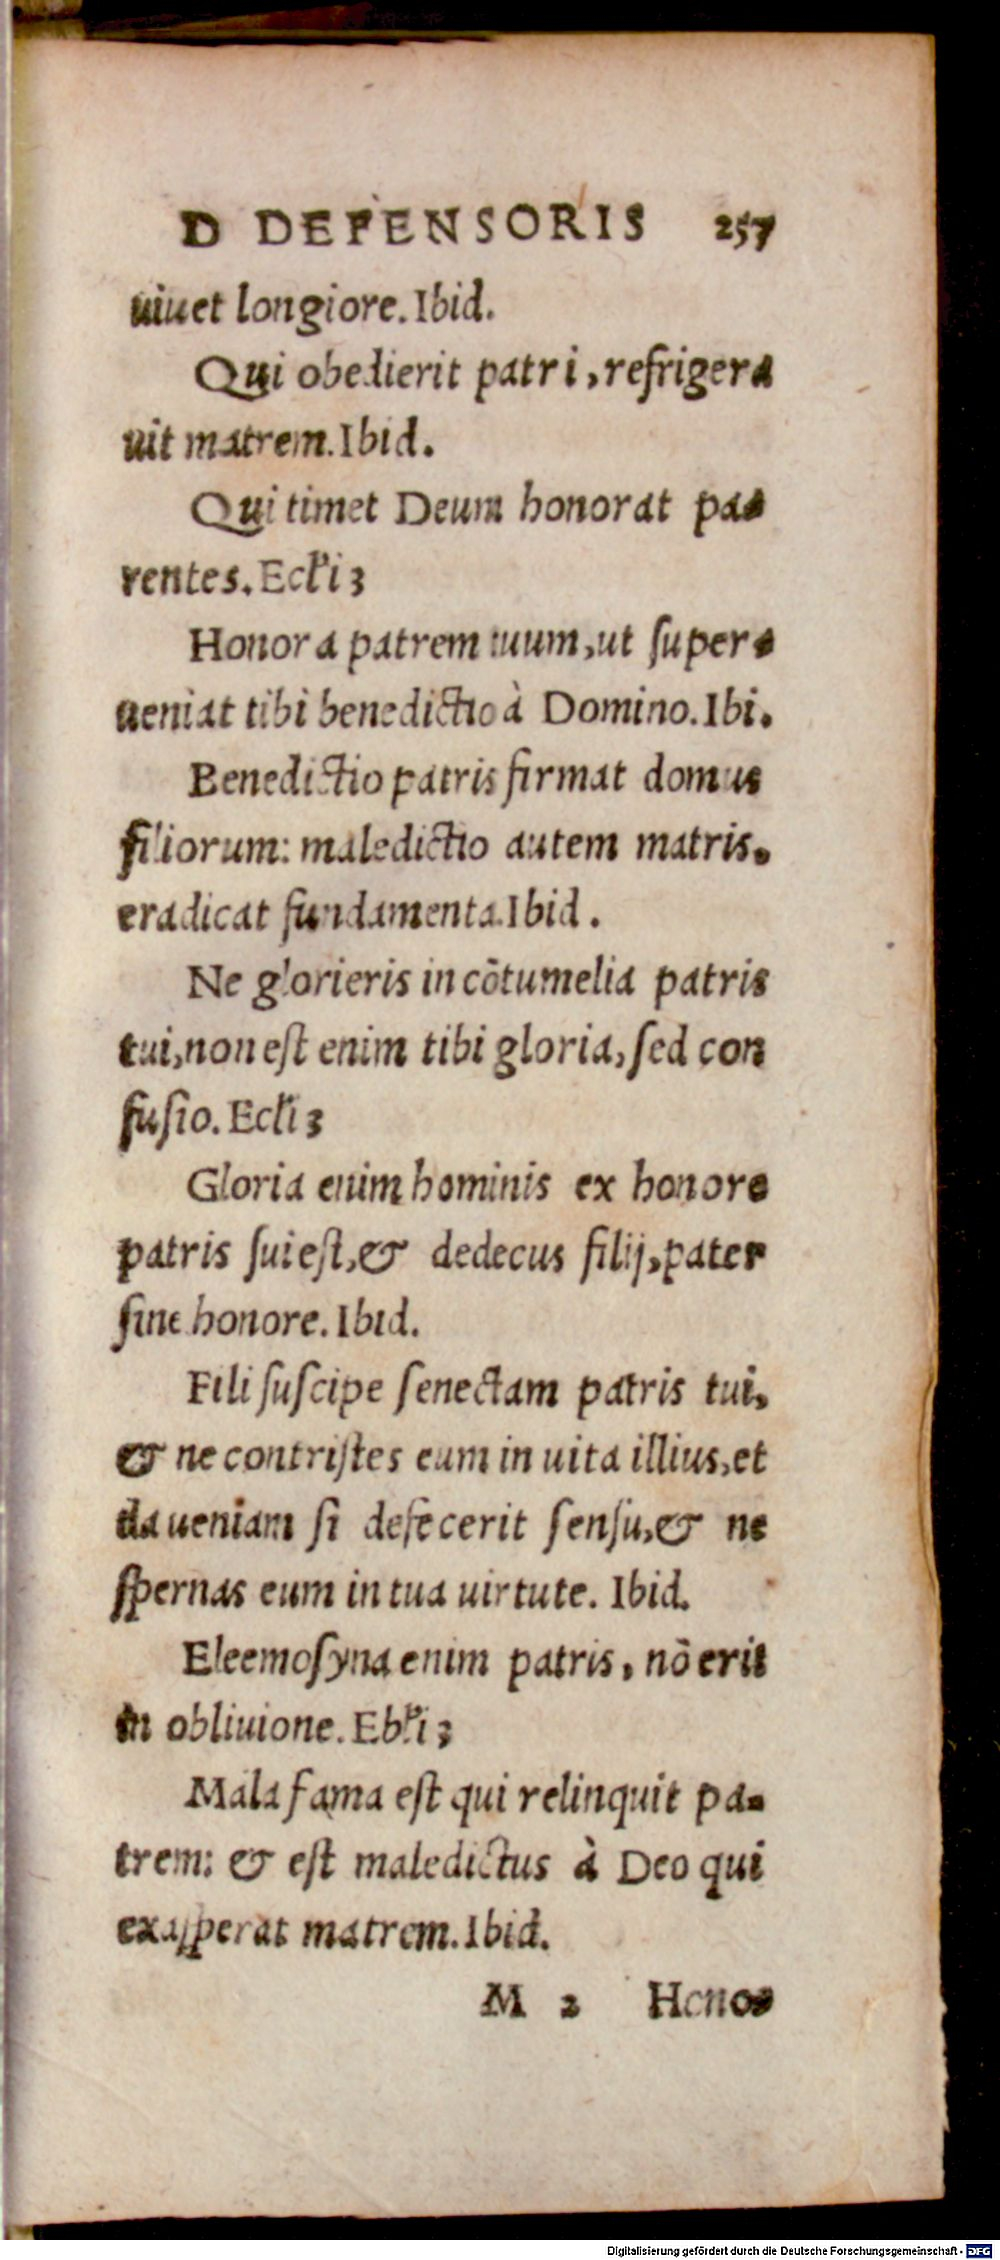 D DEFENSORIS 257
uiuet longiore. Ibid.
Qui obedierit patri, refrigera
uit matrem. Ibid.
Qui timet Deum honorat pa-
rentes. Ecłi 3
Honora patrem tuum, ut super-
ueniat tibi benedictio à Domino. Ibi.
Benedictio patris firmat domus
filiorum: maledictio autem matris,
eradicat fundamenta. Ibid.
Ne glorieris in cōtumelia patris
tui, non est enim tibi gloria, sed con
fusio. Ecłi 3
Gloria enim hominis ex honore
patris sui est, & dedecus filij, pater
sine honore. Ibid.
Fili suscipe senectam patris tui,
& ne contristes eum in uita illius, et
da ueniam si defecerit sensu, & ne
spernas eum in tua uirtute. Ibid.
Eleemosyna enim patris, nō erit
in obliuione. Ebłi 3
Mala fama est qui relinquit pa-
trem: & est maledictus à Deo qui
exasperat matrem. Ibid.
M 2 Hono-
Digitalisierung gefördert durch die Deutsche Forschungsgemeinschaft - DFG